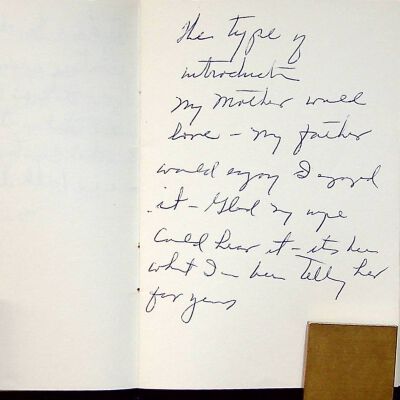 This type of
introduction
my mother would
love – my father
would enjoy I enjoyed
it – Glad my wife
could hear it – its been
what I've been telling her
for years